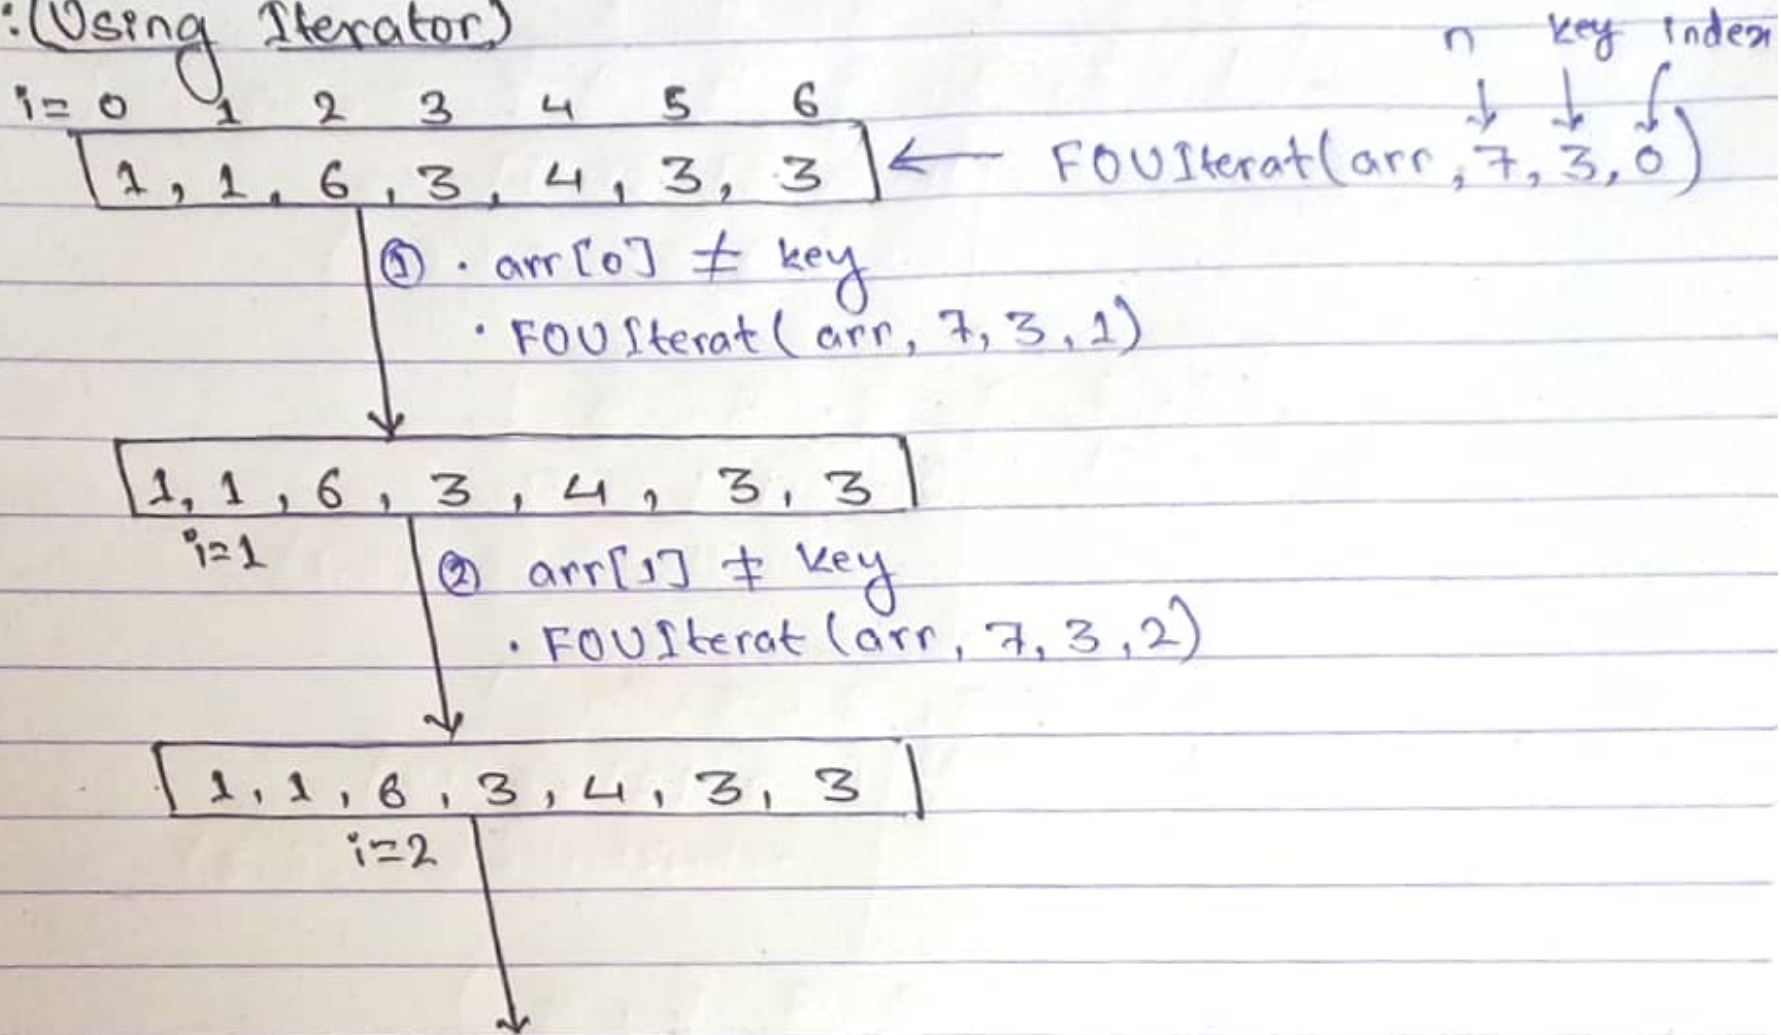 :(Using Iterator)
n key index
i= 0 1 2 3 4 5 6
↓ ↓ ↓
1, 1, 6, 3, 4, 3, 3 ← FOUIterat(arr, 7, 3, 0)
① · arr[0] ≠ key
· FOUIterat(arr, 7, 3, 1)
1, 1, 6, 3, 4, 3, 3
i=1
② arr[1] ≠ key
· FOUIterat(arr, 7, 3, 2)
1, 1, 6, 3, 4, 3, 3
i=2